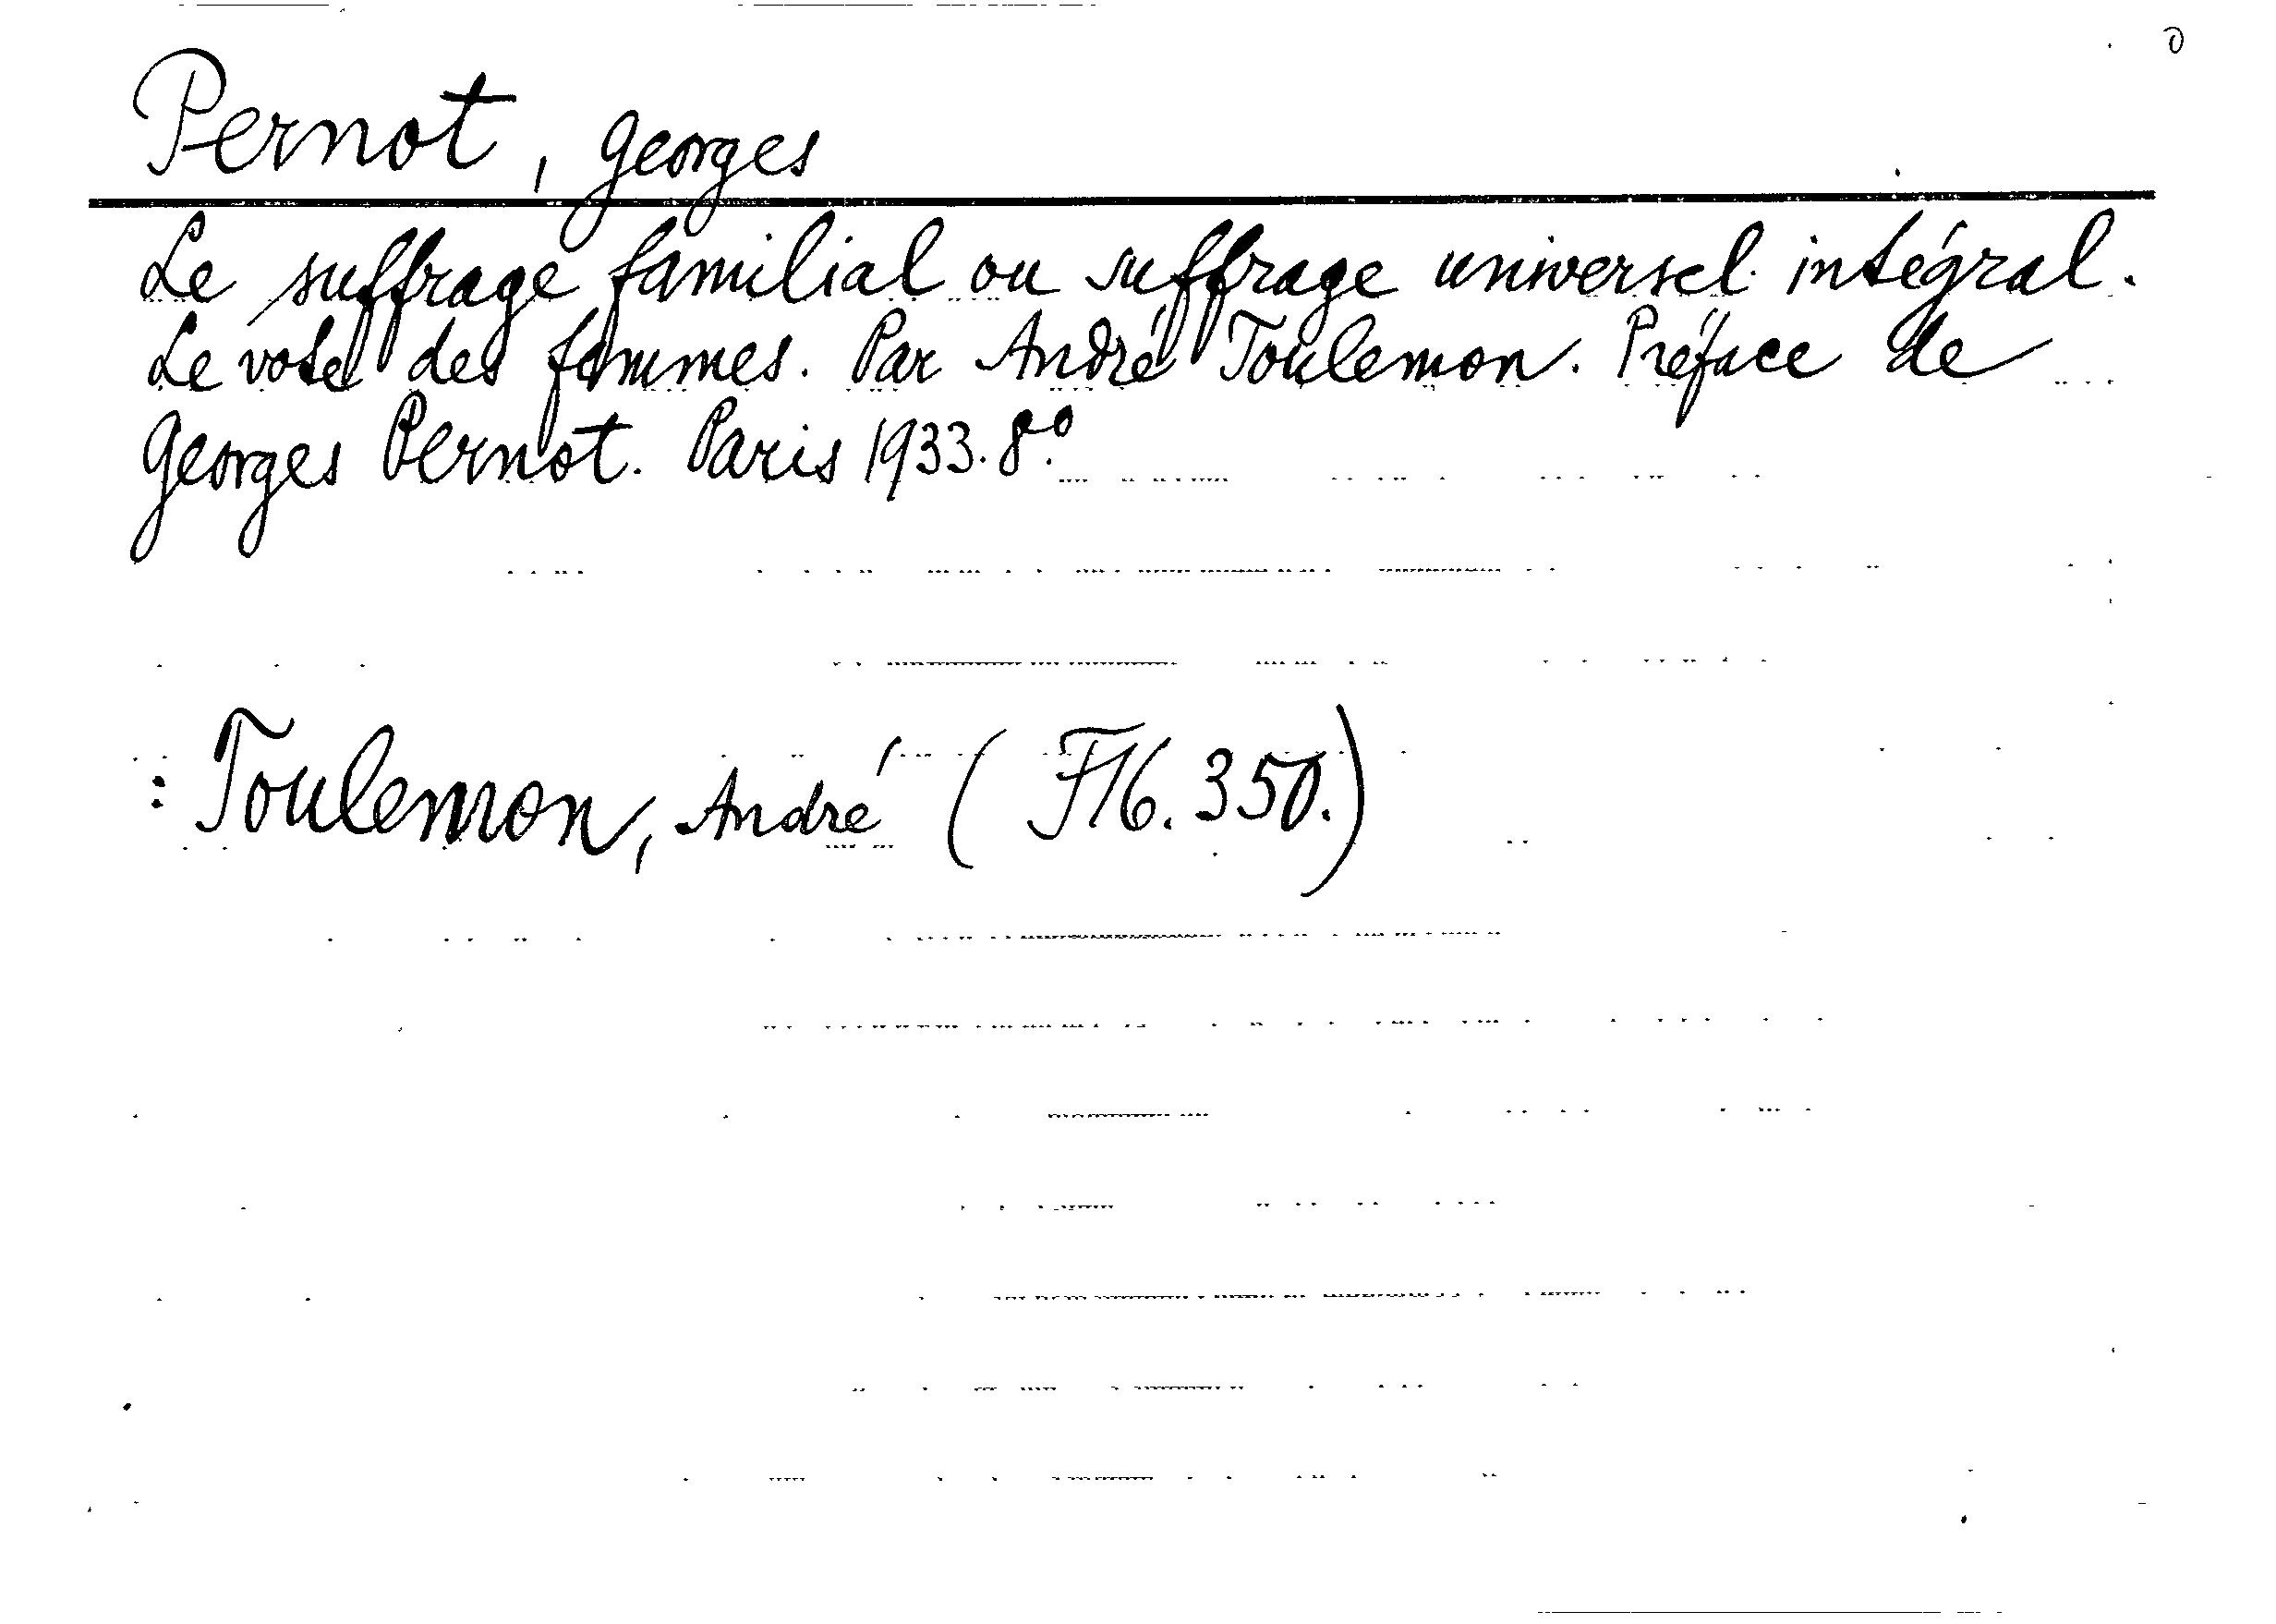 Pernot, Georges
Le suffrage familial ou suffrage universel intégral.
Le vote des femmes. Par André Toulemon. Préface de
Georges Pernot. Paris 1933. 8°.
: Toulemon, André (F16. 350.)